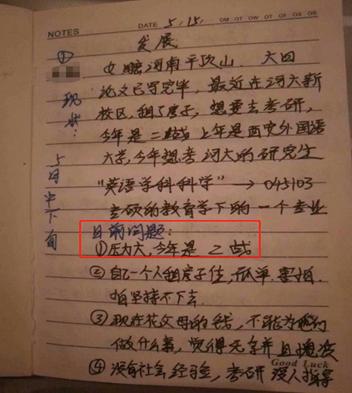 NOTES
DATE 5.15.
发展
①
女 河南平顶山. 大四
现状:
论文已写完毕, 最近在河大新
校区, 租了房子, 想要去考研,
今年是二战 上年是西安外国语
大学, 今年想考河大的研究生
5月中下旬
“英语学科科学” → 045103
专硕的教育学下的一个专业
目前问题:
①压力大, 今年是 二战
②自己一个人租房子住, 孤单. 害怕
怕坚持不下去.
③现在花父母的钱, 不能为
做什么事, 觉得无奈并且愧疚
Good Luck
④没有社会经验, 考研 没人指导